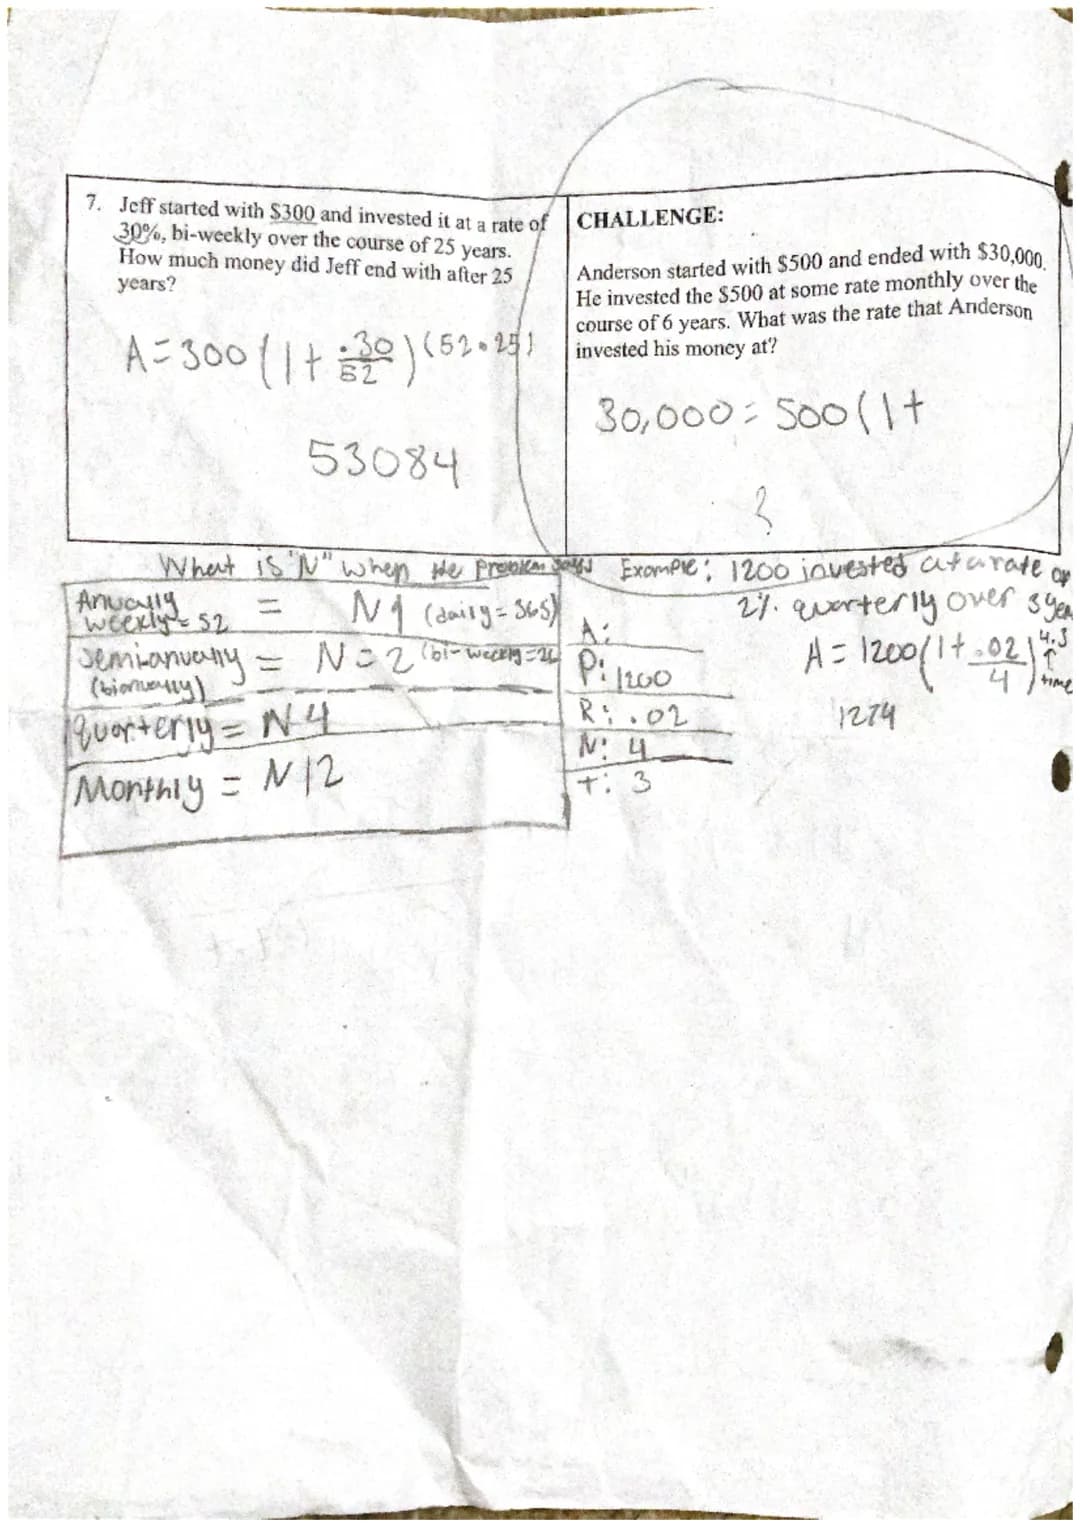 7. Jeff started with $300 and invested it at a rate of
30%, bi-weekly over the course of 25 years.
How much money did Jeff end with after 25
years?
A=300(1+.30/52)(52•25)
53084
CHALLENGE:
Anderson started with $500 and ended with $30,000.
He invested the $500 at some rate monthly over the
course of 6 years. What was the rate that Anderson
invested his money at?
30,000=500(1+
?
What is "N" when the problem says
Anually = N1 (daily=365)
weekly=52
Semi-anually = N=2 (bi-weekly=26
(bianually)
quarterly=N4
Monthly = N12
Example: 1200 invested at a rate of
2%. quarterly over 3 yea
A:
P: 1200
R: .02
N: 4
t: 3
A=1200(1+.02/4)4.3
↑
time
1274